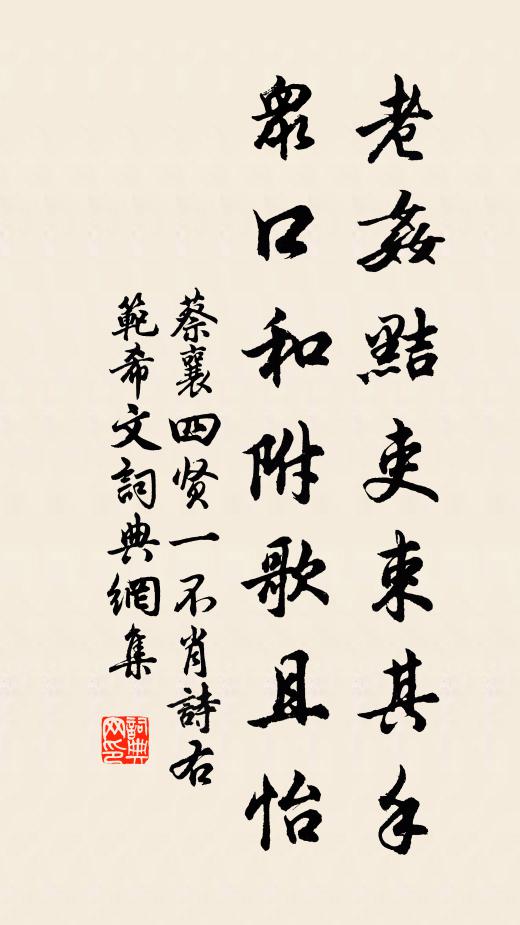 老姦黠吏束其手
眾口和附歌且怡
蔡襄四贤一不肖詩右
範希文詞典網集
詞典網印